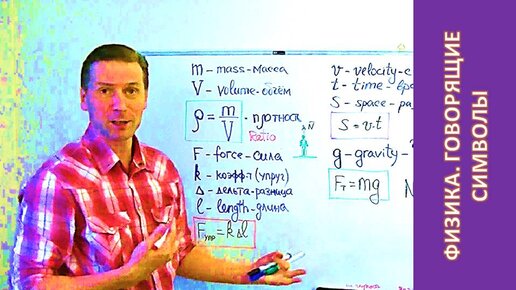 m - mass-масса
V - volume-объём
ρ = m/V - плотност
Ratio
F - force-сила
k - коэффт (упруг)
Δ - дельта-разница
l - length-длина
Fупр = kΔl
v - velocity-с
t - time-вр
S - space-ра
S = v·t
g - gravity-
Fт = mg
N
ФИЗИКА. ГОВОРЯЩИЕ
СИМВОЛЫ